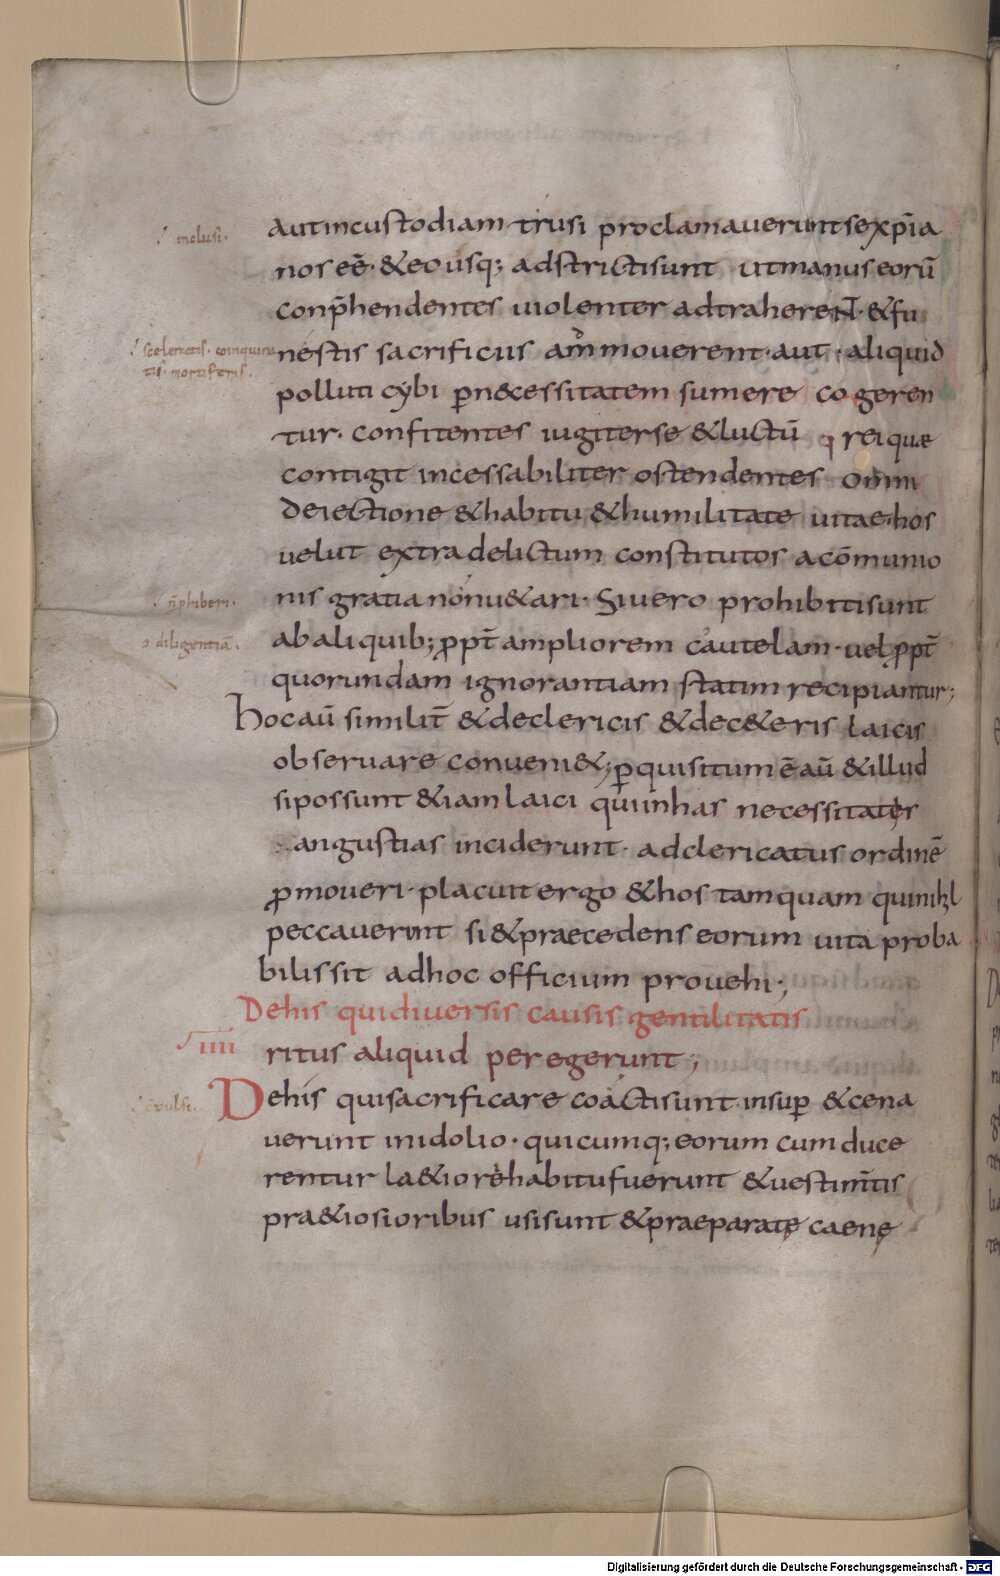 inclusi.
aut in custodiam trusi proclamauerunt se xp̄ia
nos eē. & eo usq; adstricti sunt ut manus eorū
conp̄hendentes uiolenter adtraherent. & fu
sceleratis. coinquina
tis. mortiferis.
nestis sacrificiis am̊mouerent. aut. aliquid
polluti cybi ꝑ necessitatem sumere cogeren
tur. confitentes iugiter se & luctū rei quae
contigit incessabiliter ostendentes omni
deiectione & habitu & humilitate uitae. hos
uelut extra delictum constitutos a cōmunio
ꝓhiberi.
nis gratia non u&ari. Si uero prohibiti sunt
diligentiā.
ab aliquib; ꝓpt̄ ampliorem cautelam. uel ꝓpt̄
quorundam ignorantiam statim recipiantur;
Hoc aū similit̄ & de clericis & de c&eris laicis
obseruare conueni&; ꝑquisitum ē aū & illud
si possunt &iam laici qui in has necessitatis
angustias inciderunt. ad clericatus ordinē
ꝓmoueri. placuit ergo & hos tamquam qui nihil
peccauerunt si & praecedens eorum uita proba
bilis sit ad hoc officium prouehi;
De his qui diuersis causis gentilitatis
IIII
ritus aliquid peregerunt;
De his qui sacrificare coacti sunt insuꝑ & cena
uerunt in idolio. quicumq; eorum cum duce
rentur la&iore habitu fuerunt & uestim̄tis
pra&iosioribus usi sunt & praeparate caene
Digitalisierung gefördert durch die Deutsche Forschungsgemeinschaft - DFG